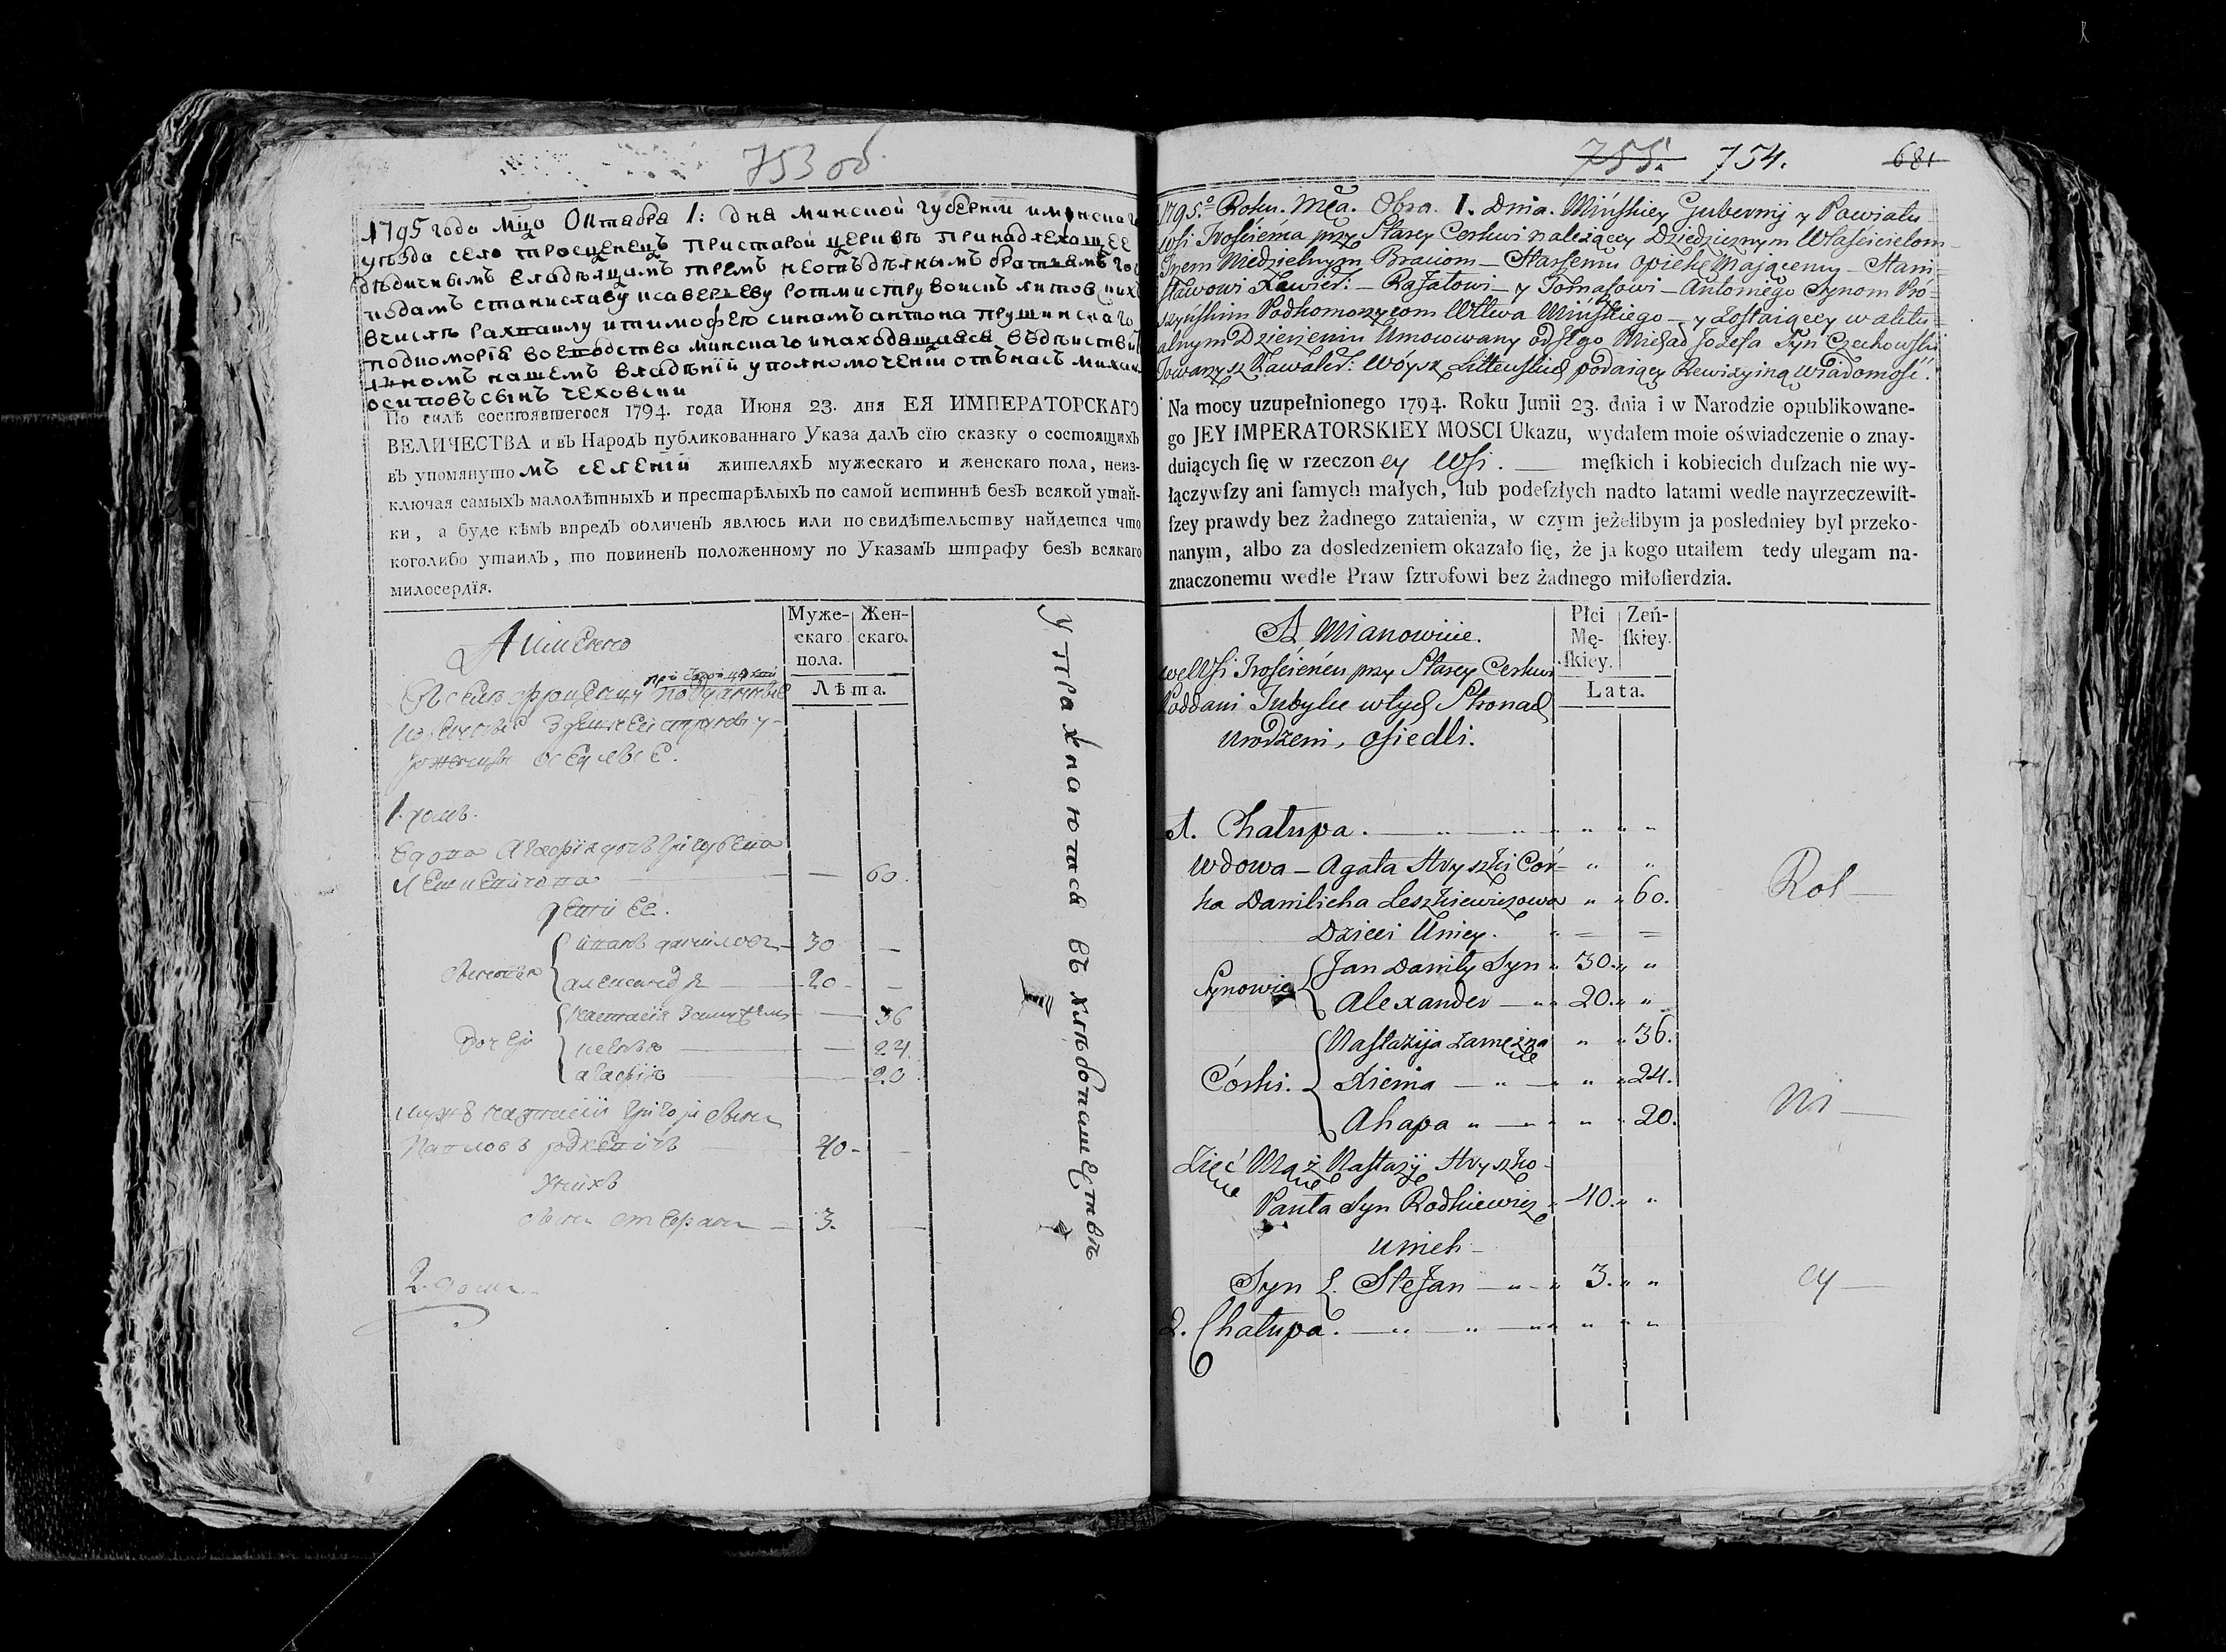 753 об
1795 года мца Октабра 1: дня минской губернїи и минскаго
уѣзда село тросценецъ при старой церквѣ принадлежащее
дѣдичнымъ владѣлцамъ тремъ неотъдѣлнымъ братьямъ
станиславу ксаверьеву ротмистру воискъ литовских
вчислѣ рахпаилу и тимофею синамъ антона прушинскаго
подкоморїя воеводства минскаго и находящаяся
нашемъ владѣнїй уполномоченїй отъ насъ михаи
осиповъ сынъ чеховски
По силѣ состоявшегося 1794. года Июня 23. дня ЕЯ ИМПЕРАТОРСКАГО
ВЕЛИЧЕСТВА и въ Народъ публикованнаго Указа далъ сїю сказку о состоящихъ
въ упомянутомъ селенїи жителяхъ мужескаго и женскаго пола, неиз-
ключая самыхъ малолѣтныхъ и престарѣлыхъ по самой истиннѣ безъ всякой утай-
ки, а буде кѣмъ впредь обличенъ явлюсь или по свидѣтельству найдется что
коголибо утаилъ, то повиненъ положенному по Указамъ штрафу безъ всякаго
милосердїя.
А имЕнно
Муже-
скаго
пола.
Жен-
скаго.
Лѣта.
1. домъ.
вдова Агафїя дочь
— 60.
дети ее.
иванъ данилов 30 —
александр 20 —
настасїя замужем — 36
24
агафїя — 20
мужъ настасїи григорь
40 —
у них
3. —
2. дом.
упражнаются въ хлѣбопашествѣ
755. 754. 681
1795.º Roku. Mca. Obra. 1. Dnia. Mińskiey Gubernij y Powiatu
Wsi Trościeńca przy Starey Cerkwi należącey Dziedzicznym Właścicielom
Trzem Niedzielnym Braciom — Starszemu Opiekę Mającemu — Stani=
sławowi Xawier: — Rafałowi — y Tomaszowi — Antoniego Synom Pró=
szyńskim Podkomorzycom Wttwa Mińskiego — y zostaiącey w aktu=
alnym Dzierżeniu Umocowany od Jozefa Syn Czechowski
Towarzysz Kawaler: Wóysk Littewskich podaiący Rewizyiną Wiadomość.
Na mocy uzupełnionego 1794. Roku Junii 23. dnia i w Narodzie opublikowane-
go JEY IMPERATORSKIEY MOSCI Ukazu, wydałem moie oświadczenie o znay-
duiących ſię w rzeczoney Wsi. — męſkich i kobiecich duſzach nie wy-
łączywſzy ani ſamych małych, lub podeſzłych nadto latami wedle nayrzeczewiſt-
ſzey prawdy bez żadnego zataienia, w czym jeżelibym ja posledniey był przeko-
nanym, albo za dosledzeniem okazało ſię, że ja kogo utaiłem tedy ulegam na-
znaczonemu wedle Praw ſztrofowi bez żadnego miłoſierdzia.
A, Mianowicie.
Płci
Mę-
ſkiey.
Zeń-
ſkiey.
Lata.
we Wsi Trościeńcu przy Starey Cerkwi
Poddani Tubylcy w tych Stronach
Urodzeni, Osiedli.
1. Chałupa.
Wdowa — Agata Hryszki Cór=
ka Danilicha Leszkiewiczowa 60.
Dzieci Uniey.
Synowie
Jan Daniły Syn 30.
Alexander 20.
Córki.
Nastazija Zamężna 36.
Xienia 24.
Ahapa 20.
Zięć Mąż Nastazij Hryszko
Pawła Syn Rodkiewicz 40.
Unich
Syn 1. Stefan 3.
2. Chałupa.
Rol —
ni —
cy —